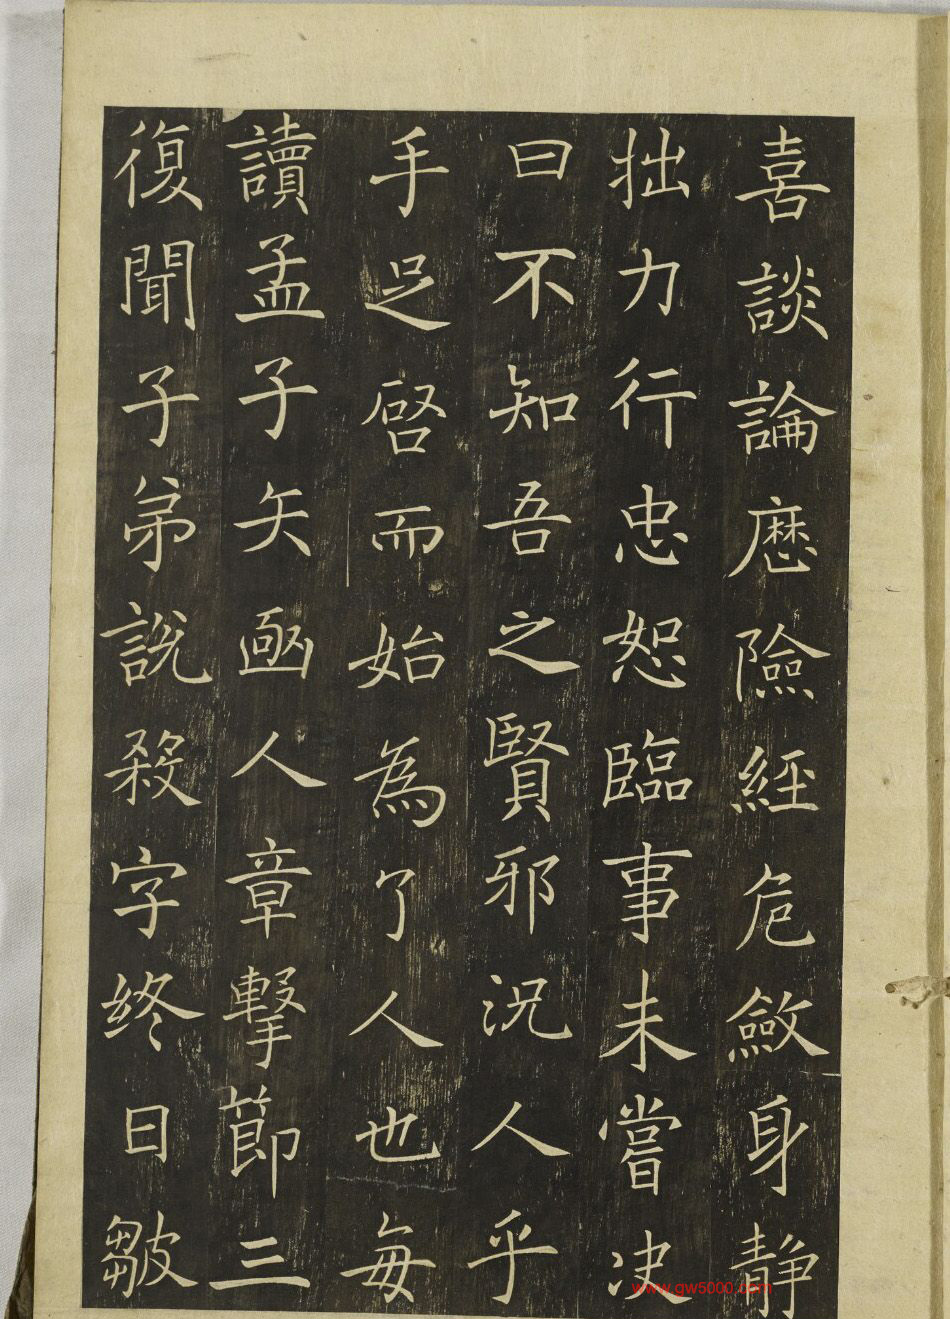 喜談論歷險經危斂身静
拙力行忠恕臨事未嘗决
曰不知吾之賢邪況人乎
手足啓而始為了人也每
讀孟子矢函人章擊節三
復聞子弟說殺字終日皺
www.gw5000.com